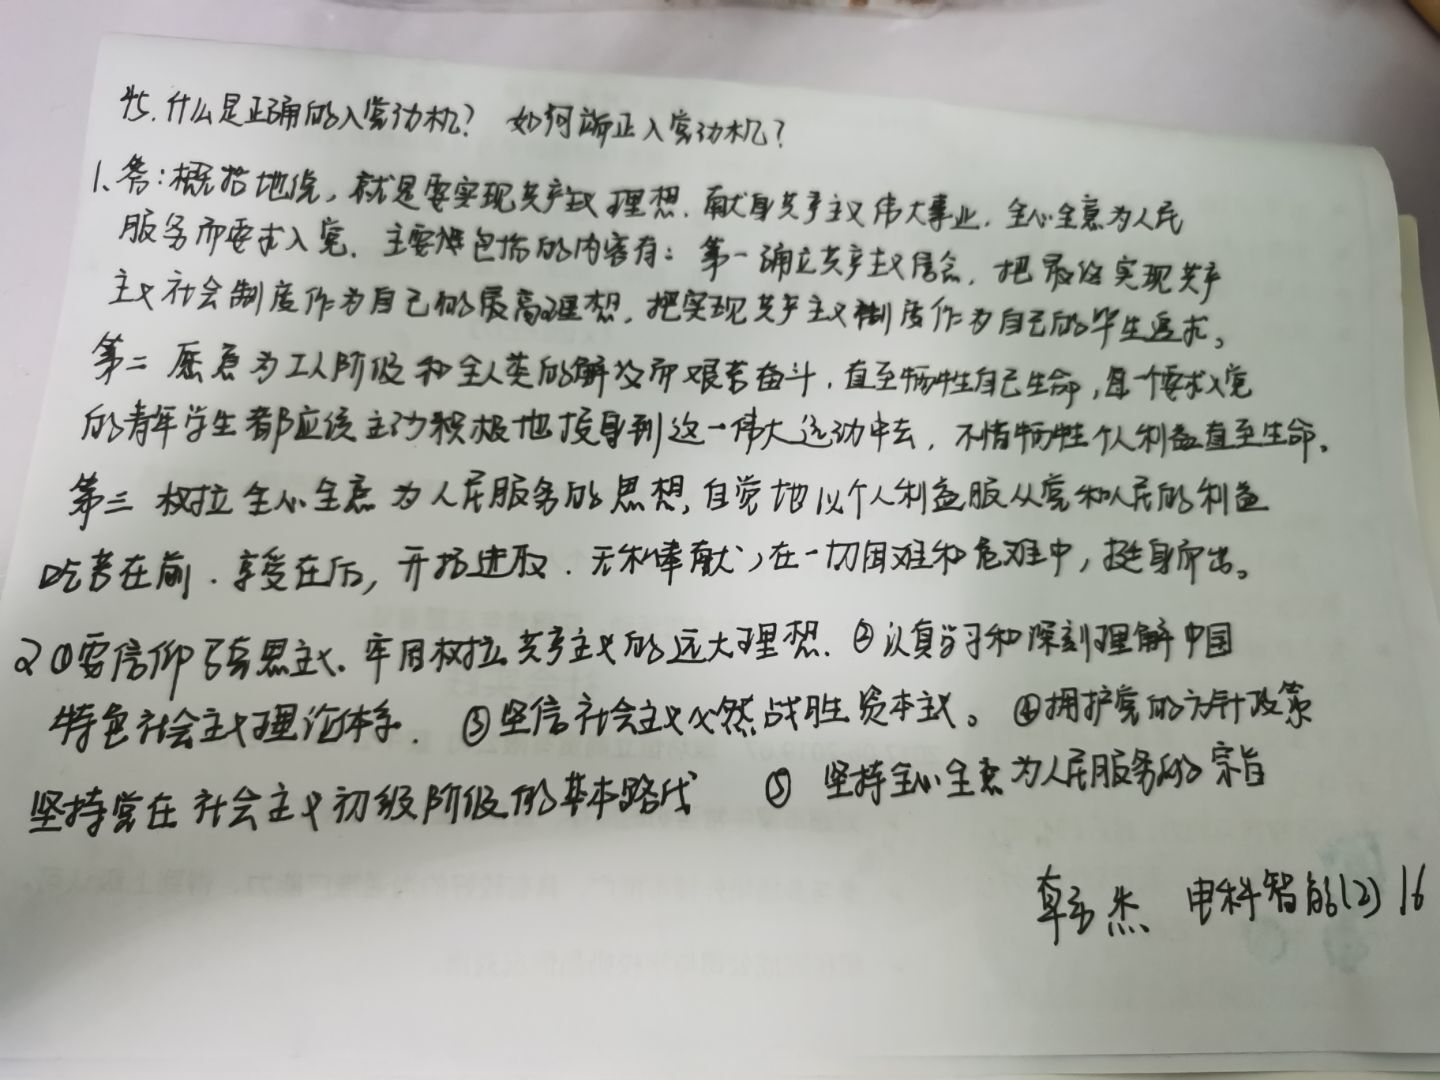 45.什么是正确的入党动机? 如何端正入党动机?
1、答:概括地说,就是要实现共产主义理想,献身共产主义伟大事业,全心全意为人民
服务而要求入党.主要包括的内容有:第一确立共产主义信念,把最终实现共产
主义社会制度作为自己的最高理想,把实现共产主义制度作为自己的毕生追求。
第二 愿意为工人阶级和全人类的解放而艰苦奋斗,直至牺牲自己生命,每一个要求入党
的青年学生都应该主动积极地投身到这一伟大运动中去,不惜牺牲个人利益直至生命。
第三 树立全心全意为人民服务的思想,自觉地以个人利益服从党和人民的利益
吃苦在前.享受在后,开拓进取.无私奉献,在一切困难和危难中,挺身而出。
2①要信仰马克思主义、牢固树立共产主义的远大理想.②认真学习和深刻理解中国
特色社会主义理论体系. ③坚信社会主义必然战胜资本主义。 ④拥护党的方针政策
坚持党在社会主义初级阶段的基本路线 ⑤ 坚持全心全意为人民服务的宗旨
杰 电科智能(2) 16